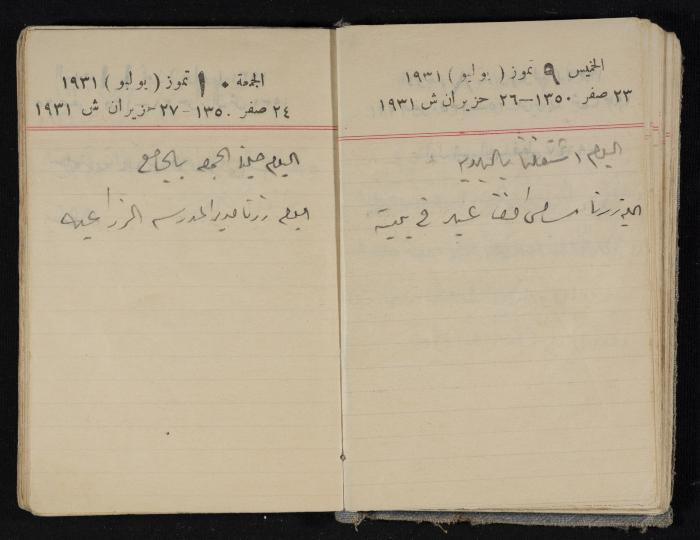 الخميس ٩ تموز (يوليو) ١٩٣١
٢٣ صفر ١٣٥٠—٢٦ حزيران ش ١٩٣١
اليوم اشتغلنا
زرنا عيد في بيته
الجمعة ١٠ تموز (يوليو) ١٩٣١
٢٤ صفر ١٣٥٠—٢٧ حزيران ش ١٩٣١
اليوم صلينا الجمعه بالجامع
اليوم زرنا مدير المدرسه الزراعيه